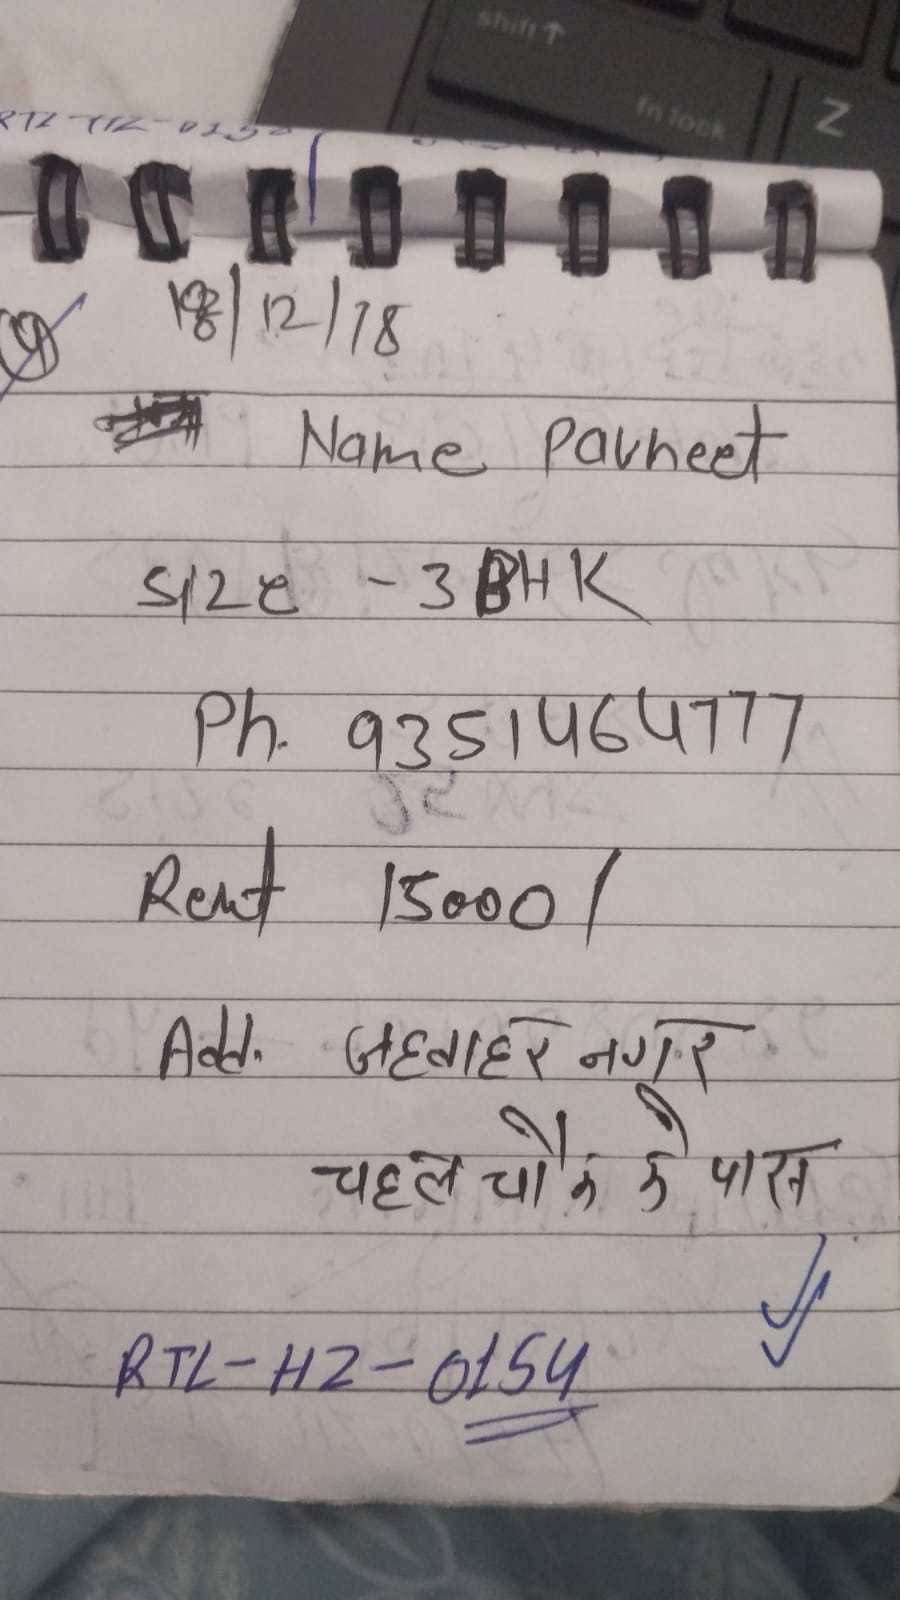 shift ↑
fn lock
Z
9
18/12/18
Name Pavneet
Size - 3 BHK
Ph. 9351464777
Rent 15000/
Add. जहवाहर नगर
चहल चौक के पास
RTL-HZ-0154